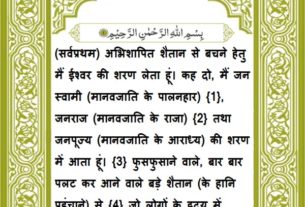 بِسْمِ اللهِ الرَّحْمٰنِ الرَّحِيْمِ
(सर्वप्रथम) अभिशापित शैतान से बचने हेतु
मैं ईश्वर की शरण लेता हूं। कह दो, मैं जन
स्वामी (मानवजाति के पालनहार) {1},
जनराज (मानवजाति के राजा) {2} तथा
जनपूज्य (मानवजाति के आराध्य) की शरण
में आता हूं। {3} फुसफुसाने वाले, बार बार
पलट कर आने वाले बड़े शैतान (के हानि
पहुंचाने) से {4} जो लोगों के हृदय में